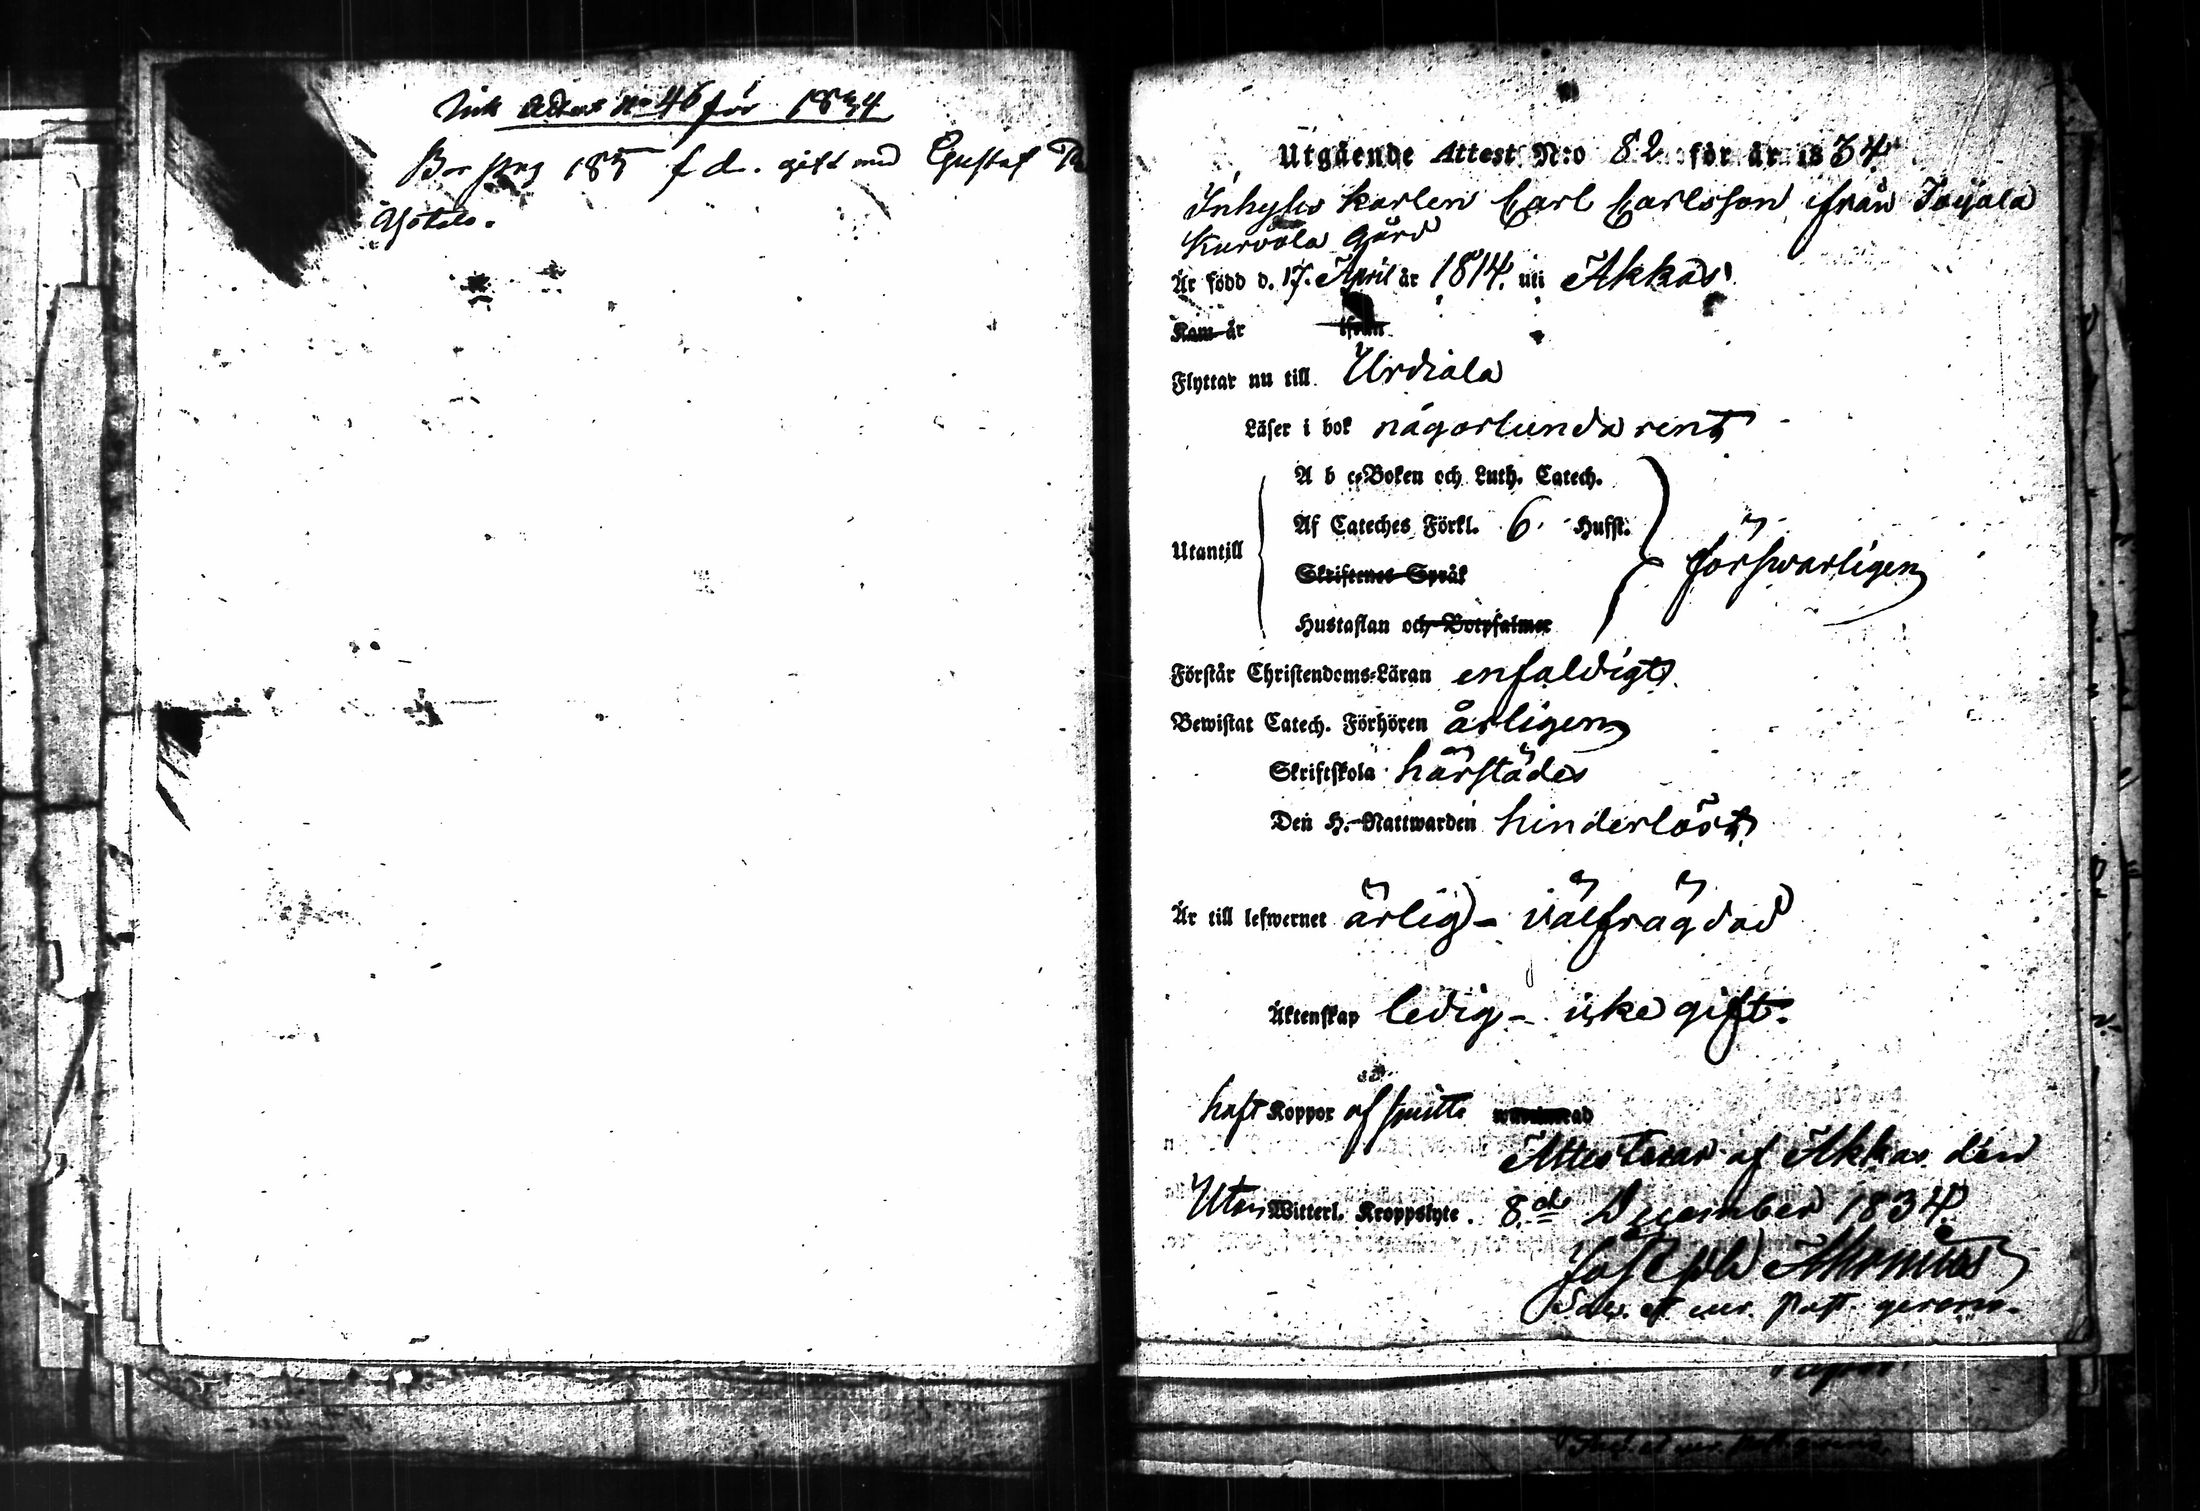 Attest No 46 för 1834
gift med Gustaf
Utgående Attest N:o 82 för år 1834
Inhyses karlen Carl Carlsson ifrån
Kurvola Gård
Är född d. 17. April år 1814. uti Akkas
Kom år ifrån
Flyttar nu till Urdiala
Läser i bok någorlunda rent
A b c-Boken och Luth. Catech.
Af Cateches Förkl. 6. Hufst.
Utantill
försvarligen
Skriftenes Språk
Hustaflan och Botpsalmer
Förstår Christendoms-Läran enfaldigt
Bewistat Catech. Förhören årligen
Skriftskola härstädes
Den H. Nattwarden hinderlöst
Är till lefwernet ärlig - välfrägdad
Äktenskap ledig - icke gift.
haft Koppor af smitta
Attesterar af Akkas den
Utan Witterl. Kroppslyte. 8de December 1834.
Joseph